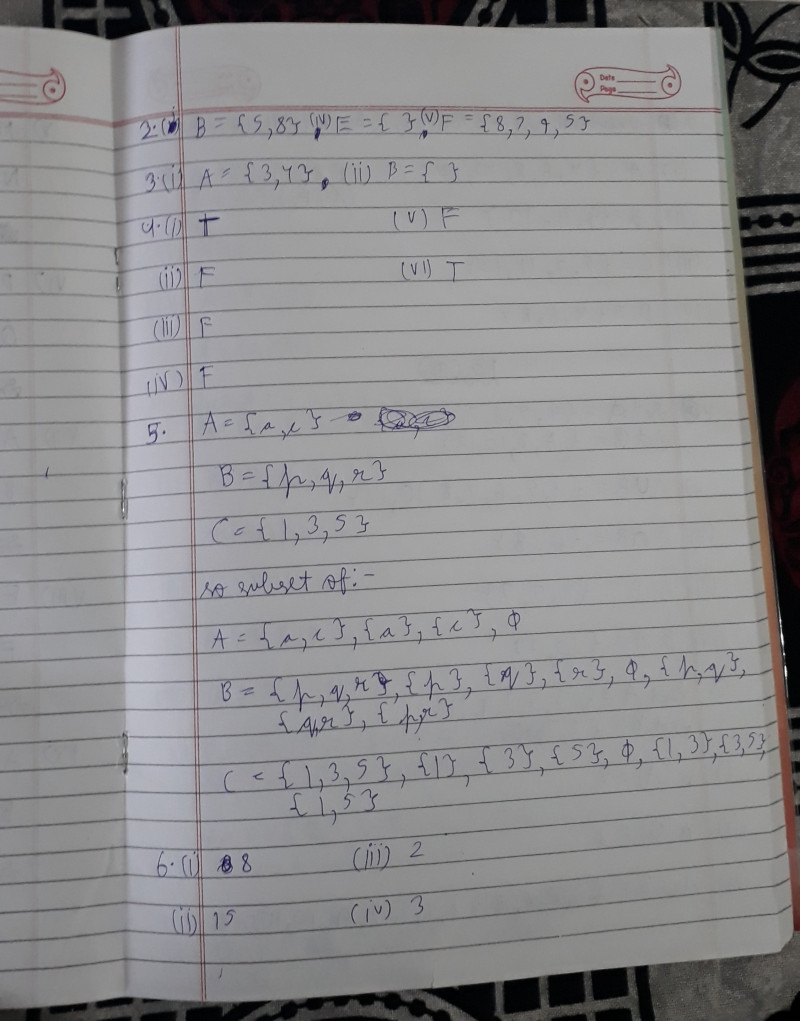 Date
Page
2.(i) B = {5,8} (iv) E = { }, (v) F = {8,7,9,5}
3.(i) A = {3,4}, (ii) B = { }
4.(i) T (v) F
(ii) F (vi) T
(iii) F
(iv) F
5. A = {a,c}
B = {p,q,r}
C = {1,3,5}
so subset of:-
A = {a,c}, {a}, {c}, φ
B = {p,q,r}, {p}, {q}, {r}, φ, {p,q},
{q,r}, {p,r}
C = {1,3,5}, {1}, {3}, {5}, φ, {1,3}, {3,5},
{1,5}
6.(i) 8 (iii) 2
(ii) 15 (iv) 3